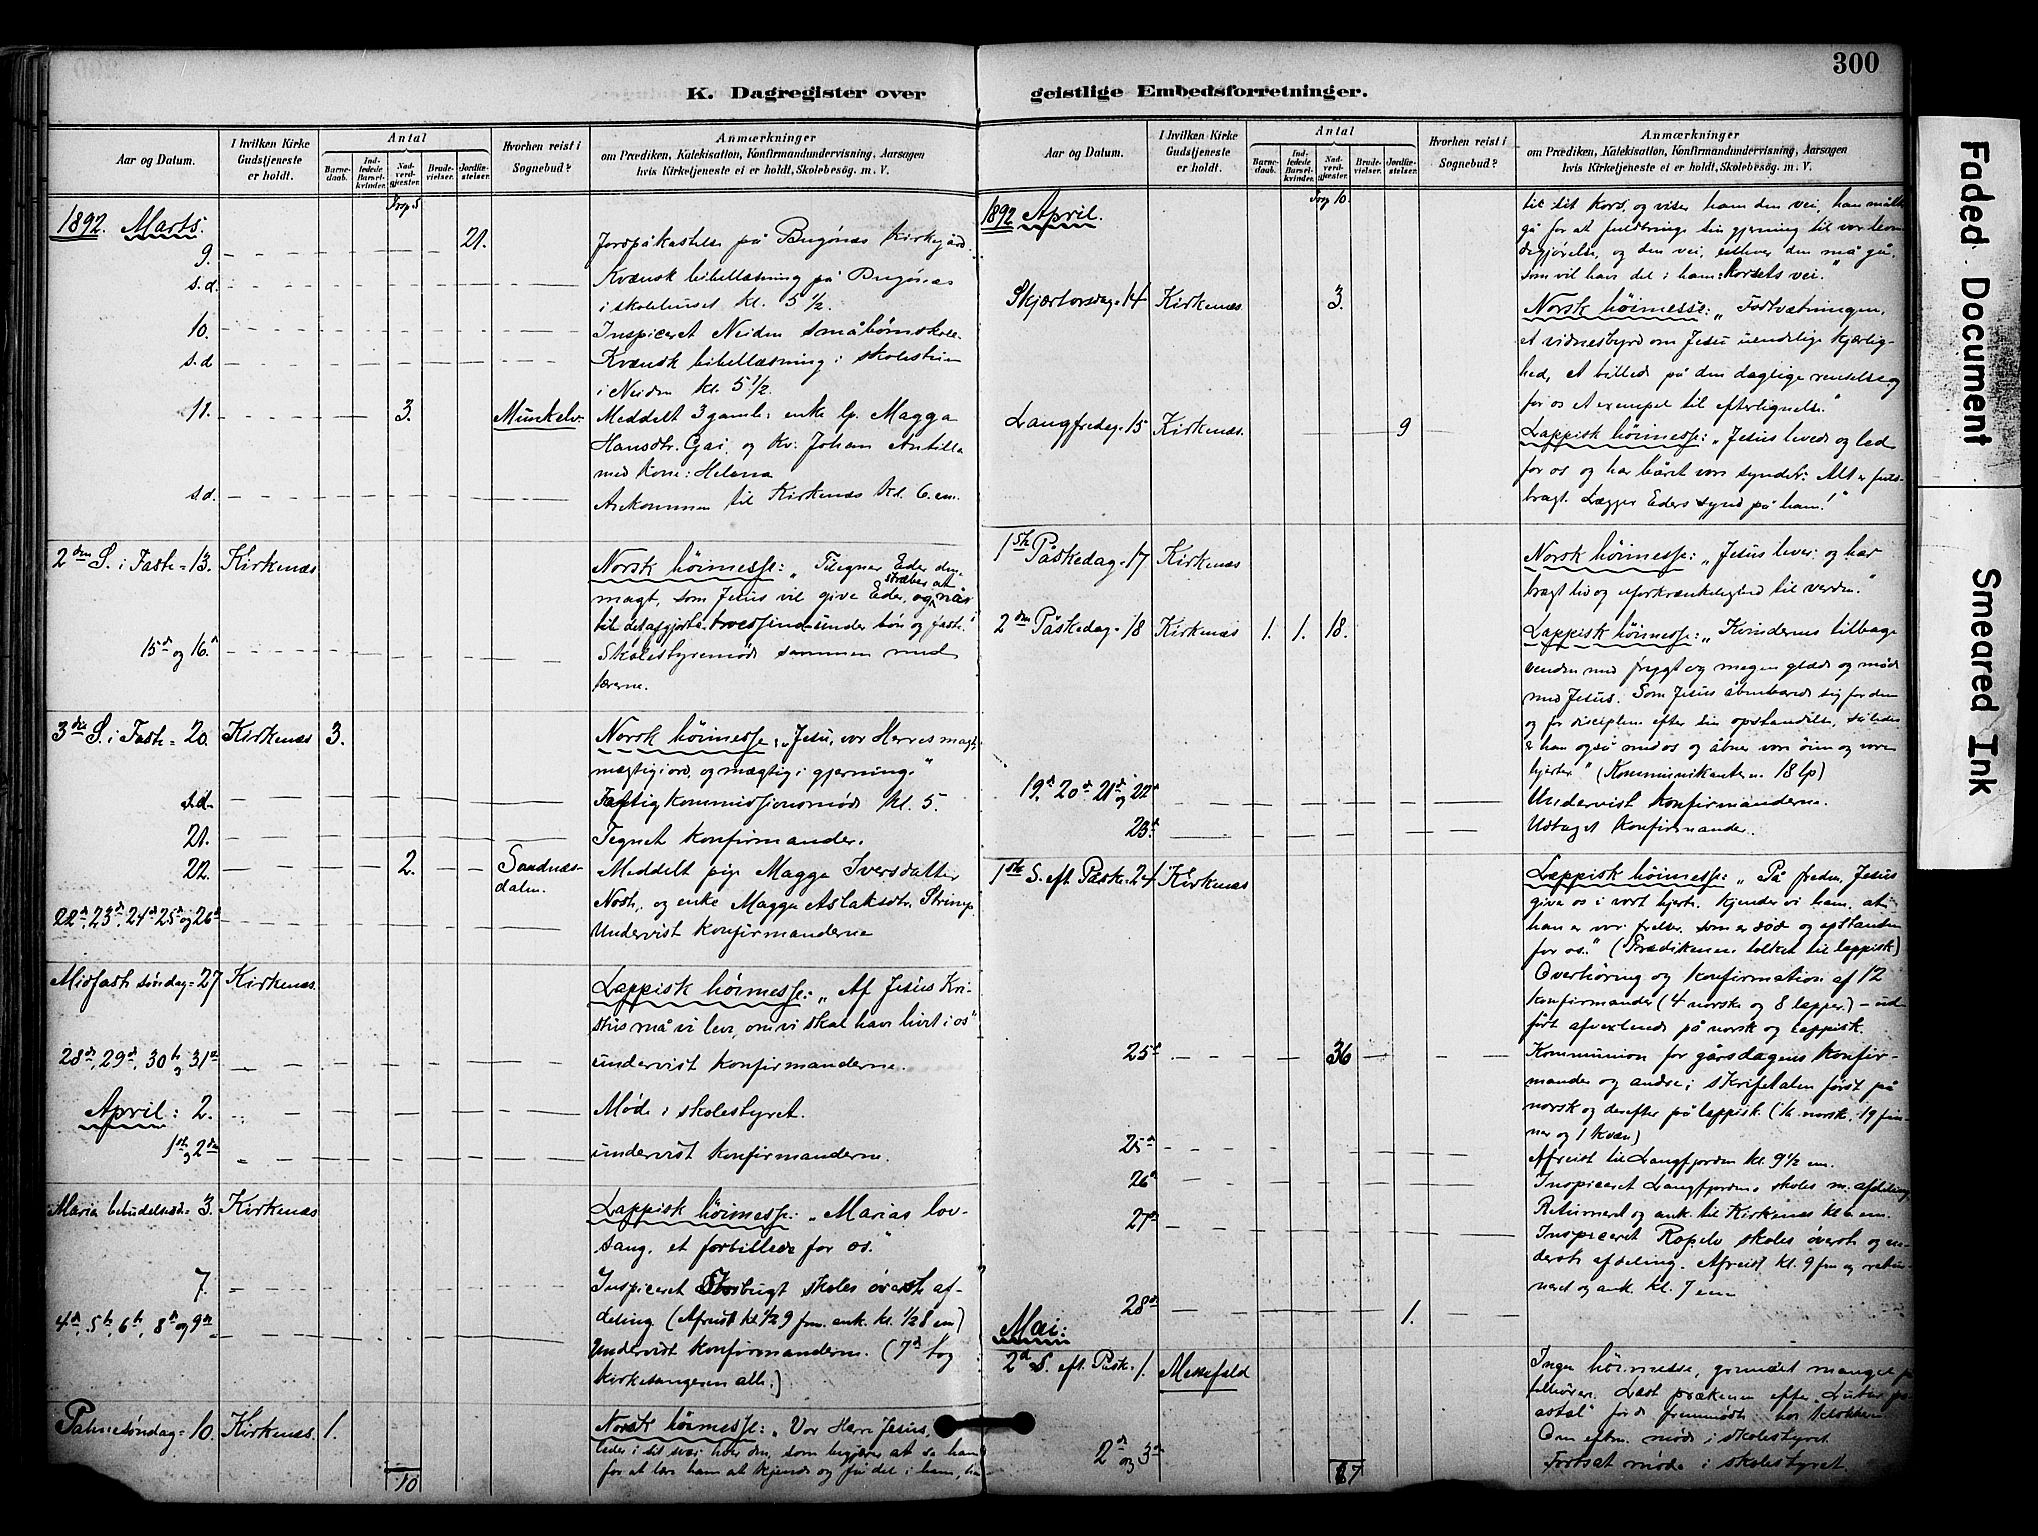 300
K. Dagregister over geistlige Embedsforretninger.
Aar og Datum.
I hvilken Kirke Gudstjeneste er holdt.
Antal
Barne-daab.
Ind-ledede Barsel-kvinder.
Nad-verd-gjæster.
Brude-vielser.
Jordfæ-stelser.
Hvorhen reist i Sognebud?
Anmærkninger
om Prædiken, Katekisation, Konfirmandundervisning, Aarsagen
hvis Kirketjeneste ei er holdt, Skolebesög. m. V.
1892. Marts.
9. 21. Jordpåkastelse på Bugönæs Kirkegård.
s.d. Kvænsk bibellæsning på Bugönæs
i skolehuset kl. 5 1/2.
10. Inspiceret Neiden småbørnskole.
s.d Kvænsk bibellæsning i skolestuen
i Neiden kl. 5 1/2.
11. 3. Munkelv. Meddelt 3 gamle: enke lp. Magga
Hansdtr. Gai, og kv. Johan Antilla
med kone: Helena
s.d. Ankommen til Kirkenæs kl. 6 em.
2den S. i Faste = 13. Kirkenæs Norsk höimesse: "Tilegner Eder den
magt, som Jesus vil give Eder, og stræber at nå
til det afgjorte under bön og faste."
15de og 16. Skolestyremöde sammen med
lærerne.
3die S. i Faste = 20. Kirkenæs 3. Norsk höimesse: "Jesu, vor Herres magt,
mægtig i ord, og mægtig i gjerning."
s.d. Fattigkommissjonsmöde kl. 5.
21. Tegnet konfirmander.
22. 2. Sandnæs-
dalen. Meddelt pige Magga Iversdatter
Noste, og enke Magga Aslaksdtr. Strimp.
22de, 23de, 24de 25de og 26de Undervist konfirmanderne
Midfaste söndag = 27 Kirkenæs. Lappisk höimesse: "Af Jesus Kri-
stus må vi leve, om vi skal have livet i os"
28de, 29de, 30te og 31te undervist konfirmanderne.
April: 2. Möde i skolestyret.
1ste og 2den undervist konfirmanderne.
Maria bebudelsesd = 3. Kirkenæs Lappisk höimesse: "Marias lov-
sang, et forbillede for os."
7. Inspiceret Storbugt skoles överste af-
deling (Afreist kl. 1/2 9 fm. ank. kl. 1/2 8 em)
4de, 5te, 6te, 8de og 9de Undervist konfirmanderne. (7de tog
kirkesangeren alle.)
Palmesöndag = 10. Kirkenæs. 1. Norsk höimesse: "Vor Herre Jesus,
10
Aar og Datum.
I hvilken Kirke Gudstjeneste er holdt.
Antal
Barne-daab.
Ind-ledede Barsel-kvinder.
Nad-verd-gjæster.
Brude-vielser.
Jordfæ-stelser.
Hvorhen reist i Sognebud?
Anmærkninger
om Prædiken, Katekisation, Konfirmandundervisning, Aarsagen
hvis Kirketjeneste ei er holdt, Skolebesög. m. V.
1892 April.
til sit kors, og viser ham den vei, han måtte
gå for at fuldbringe sin gjerning til vor
og den vei, enhver den må gå,
som vil have del i ham: korsets vei."
Skjærtorsdag = 14 Kirkenæs. 3. Norsk höimesse: "Fodtvætningen,
et vidnesbyrd om Jesu uendelige kjærlig-
hed, et billede på den daglige renselse og
for os et exempel til efterlignelse."
Langfredag = 15 Kirkenæs. 9 Lappisk höimesse: "Jesus leved og led
for os og har båret vore synder: Alt er fuld-
bragt. Lægger Eders synd på ham!"
1ste Påskedag = 17 Kirkenæs Norsk höimesse: "Jesus lever og har
bragt liv og uforkrænkelighed til verden."
2den Påskedag = 18 Kirkenæs 1. 1. 18. Lappisk höimesse: "Kvindernes tilbage
venden med frygt og megen glæde og möde
med Jesus. Som Jesus åbenbarede sig for dem
og for disciplene efter sin opstandelse, således
er han også med os og åbner vore öine og vore
hjerter" (Kommunikanterne 18 lp)
19de, 20de 21de og 22de Undervist konfirmanderne.
23de. Udtaget konfirmander.
1ste S. eft. Påske = 24 Kirkenæs Lappisk höimesse: "På freden, Jesus
giver os i vort hjerte, kjender vi ham, at
han er vor frelser, som er död og opstanden
for os." (Prædikenen tolket til lappisk)
Overhöring og konfirmation af 12
konfirmander (4 norske og 8 lapper) - ud-
fört afvexlende på norsk og lappisk.
25de 36 Kommunion for gårsdagens konfir-
mander og andre; skriftetalen först på
norsk og derefter på lappisk (16 norsk, 19 fin-
ner og 1 kvæn)
25de Afreist til Langfjorden kl. 9 1/2 em.
26de Inspiceret Langfjordens skoles m. afdeling
Returneret og ank. til Kirkenæs kl. 6 em.
27de Inspiceret Ropelv skoles överste og ne-
derste afdeling. Afreist kl. 9 fm og retur-
neret og ank. kl. 7 em
28de 1.
Mai:
2de S. eft. Påske = 1. Messefald Ingen höimesse, grundet mangel på
tilhörere. Læst prækenen efter
for de fremmödte hos klokkeren
Om eftm. möde i skolestyret.
2de og 3de Fortsat möde i skolestyret.
Faded Document
Smeared Ink